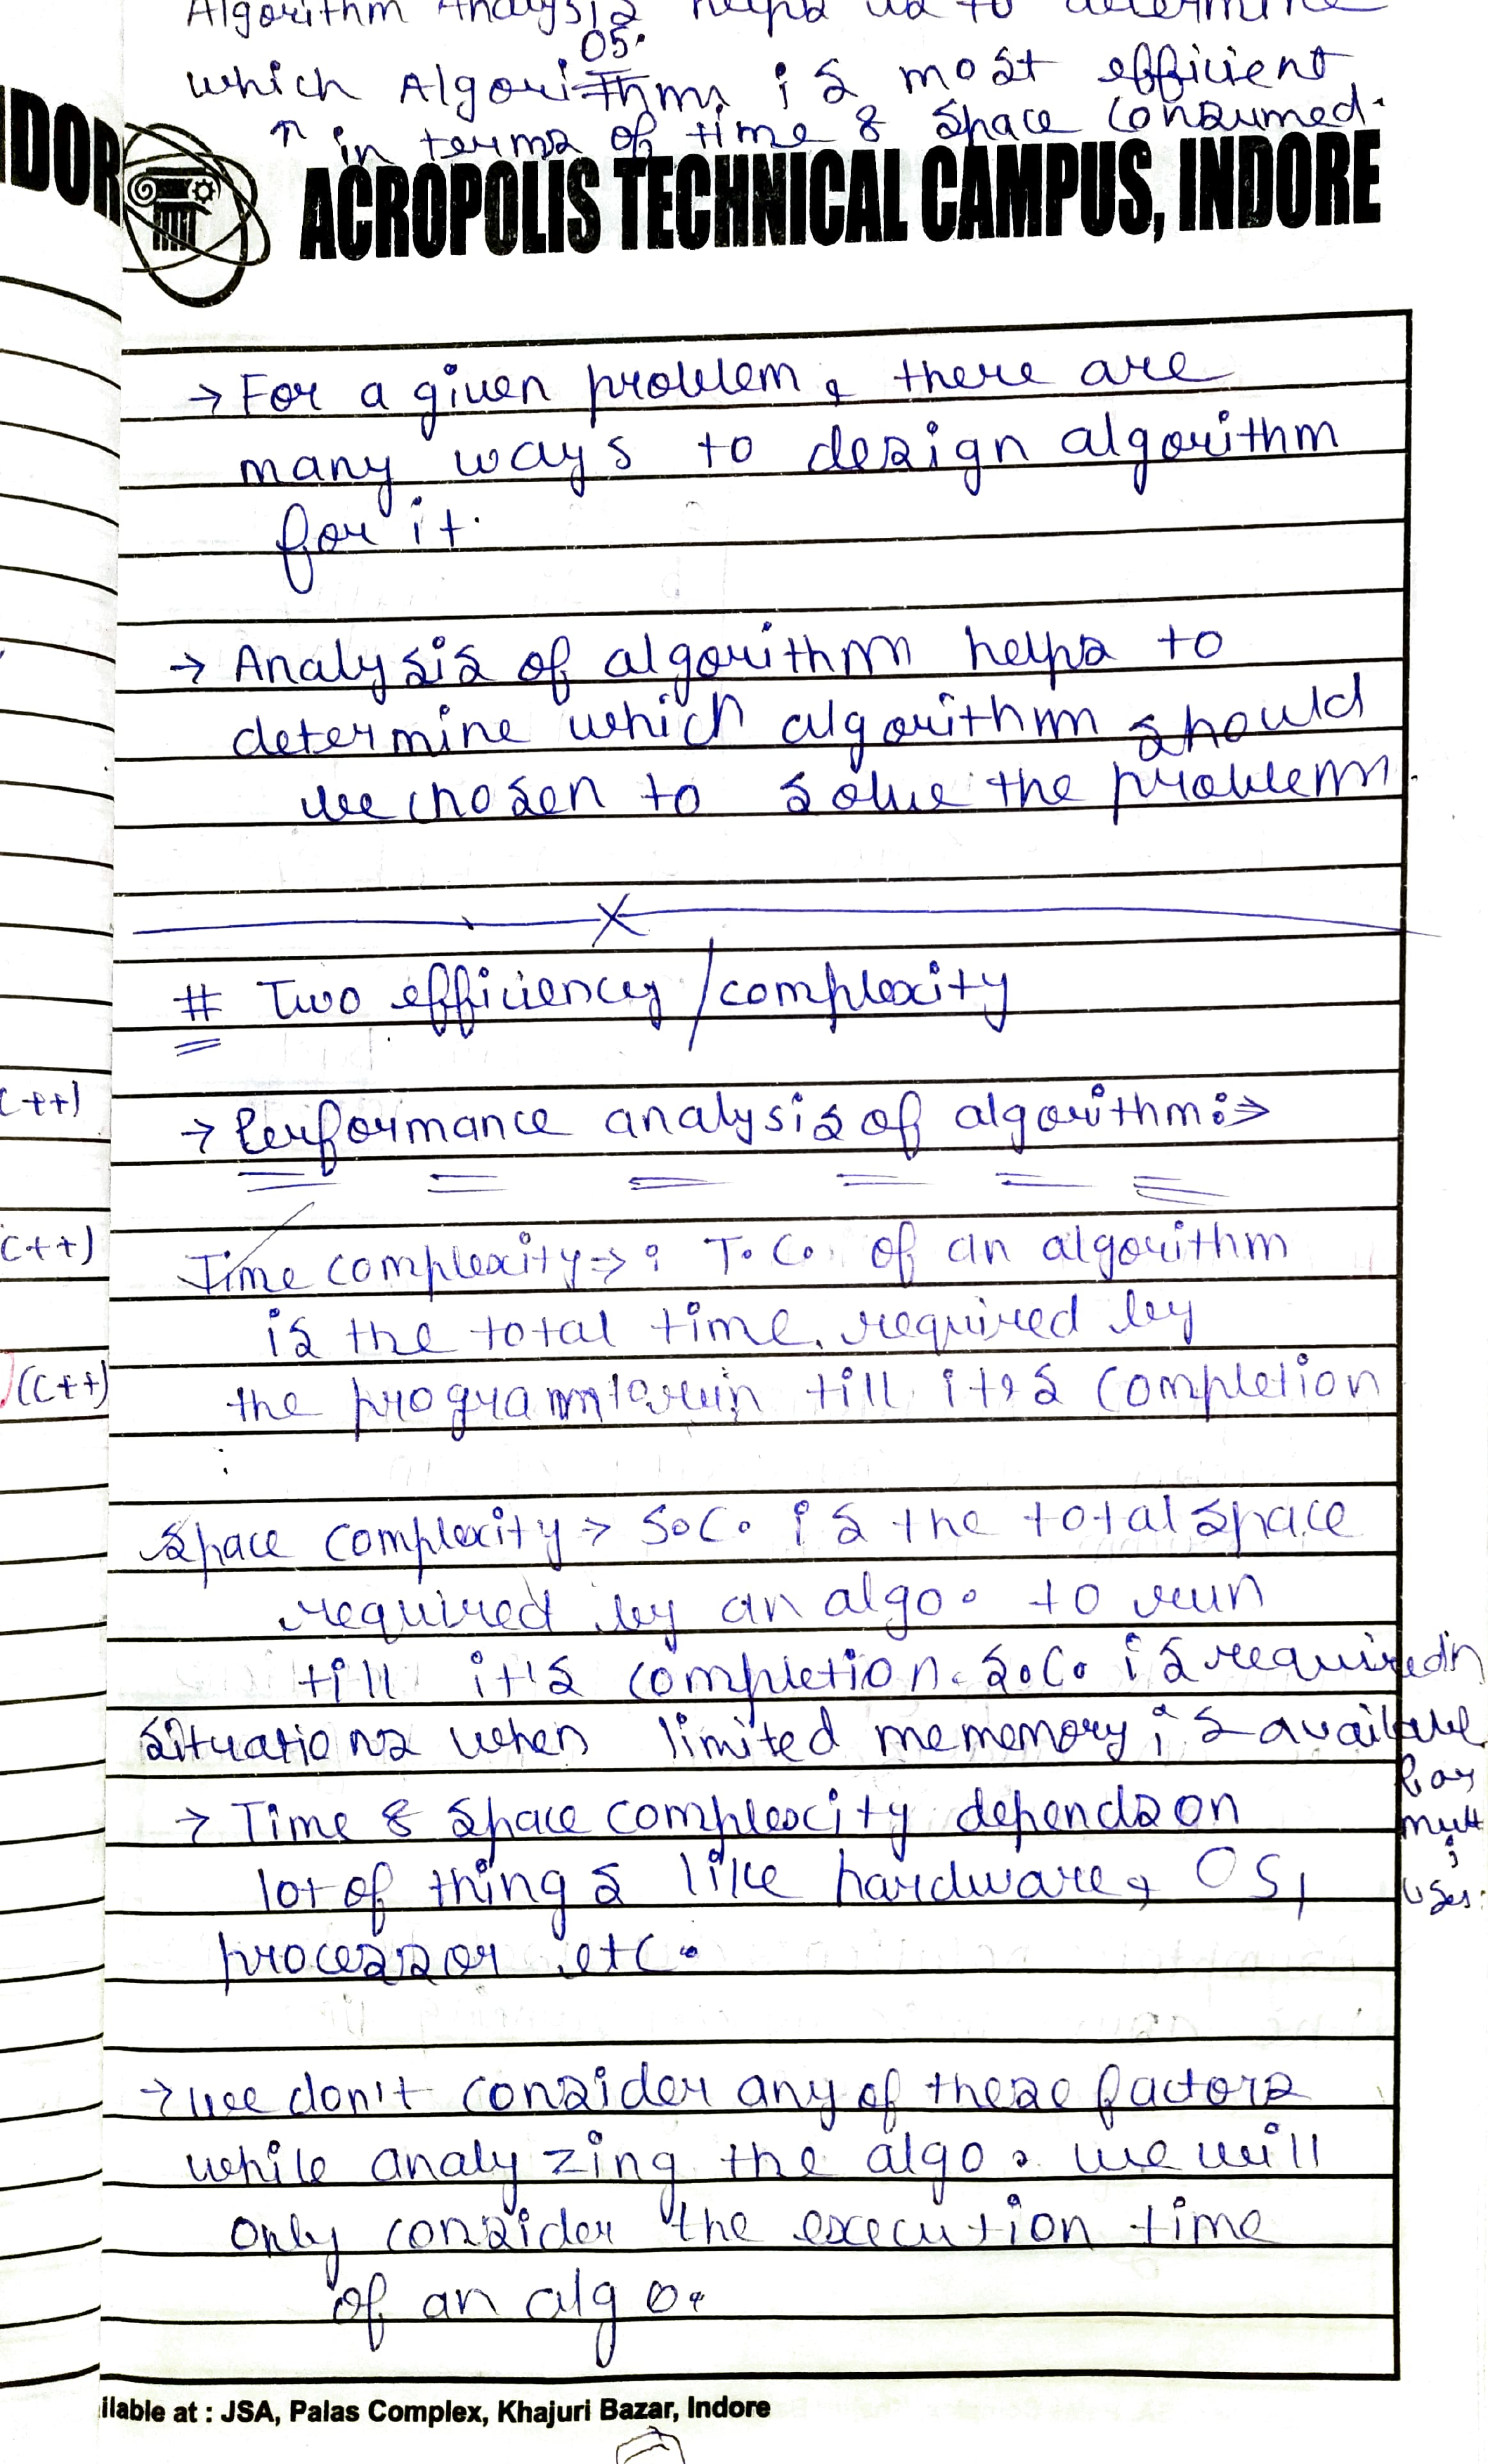 Algorithm Analysis helps us to determine
05.
which Algorithms is most efficient
in terms of time & space consumed.
DOR
ACROPOLIS TECHNICAL CAMPUS, INDORE
→ For a given problem, there are
many ways to design algorithm
for it.
→ Analysis of algorithm helps to
determine which algorithm should
be chosen to solve the problem.
# Two efficiency / complexity
(C++)
→ Performance analysis of algorithm :⇒
C++)
Time complexity → : T.C. of an algorithm
is the total time required by
(C++)
the program to run till it's completion
Space complexity → S.C. is the total space
required by an algo. to run
till it's completion. S.C. is required in
situations when limited mememory is available
for
→ Time & space complexity depends on
mult
i
lot of things like hardware, OS,
users.
processor etc.
→ we don't consider any of these factors
while analyzing the algo. we will
only consider the execution time
of an algo.
ilable at : JSA, Palas Complex, Khajuri Bazar, Indore